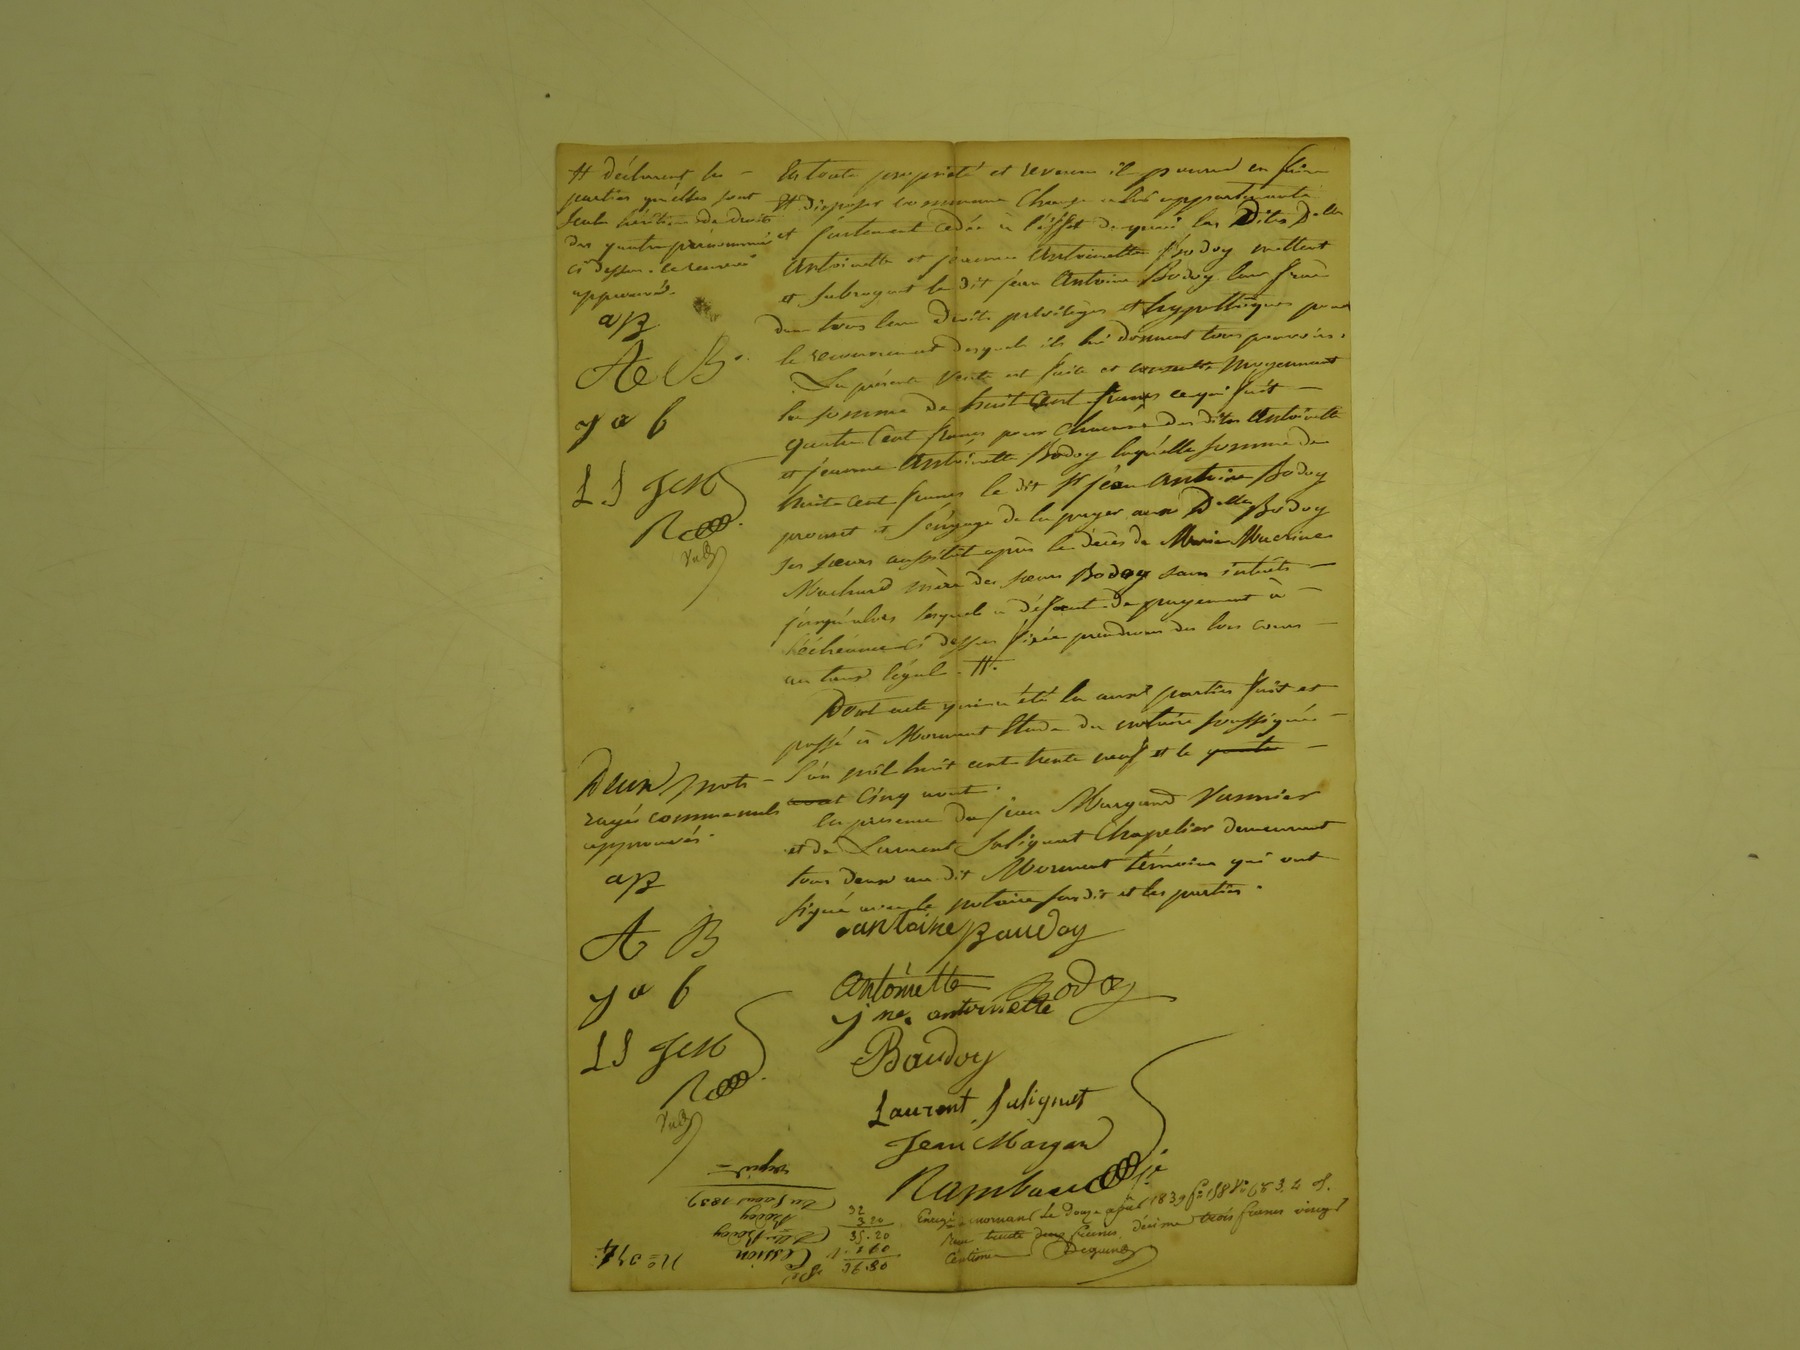 H déclarent les
parties qu'elles sont
seules héritières de droits
des quatre prénommés
ci dessus. le renvoi
approuvé.
aB
A B.
j a b
LS JM
R
En toute propriété et revenu il pourra en faire
et disposer comme chose à lui appartenante
et justement cédée à l'effet de quoi les Dites Dlles
Antoinette et jeanne Antoinette Bodoy mettent
et subrogent le dit jean Antoine Bodoy leur frère
dans tous leurs Droits privilèges et hypothèques pour
le recouvrement desquels ils lui donnent tous pouvoirs.
La présente Vente est faite et Moyennant
la somme de huit Cent francs ce qui fait
quatre Cent francs pour chacune des dites Antoinette
et jeanne Antoinette Bodoy laquelle somme de
huit Cent francs le dit Sr jean Antoine Bodoy
promet et s'engage de la payer aux Dlles Bodoy
ses sœurs aussitôt après le décès de Marie
mère des sœurs Bodoy sans intérêts
jusqu'alors lesquels à défaut de payement à
l'échéance ci dessus fixée prendront dès lors cours
au taux légal. H.
Dont acte qui a été lu aux parties fait et
passé à Mornant Etude du notaire soussigné
l'an mil huit cent trente neuf et le quatre
avril Cinq avril.
En présence de jean Margand
et de Laurent Salignat Chapelier demeurant
tous deux au dit Mornant témoins qui ont
signé avec le notaire susdit et les parties.
Deux mots
rayés comme nuls
approuvés
aB
A B
j a b
LS JM
R
antoine Baudoy
Antoinette Bodoy
jne antoinette
Baudoy
Laurent Salignat
Jean Margand
Rambaud
Enregé à mornant le douze avril 1839 fo 158
trente deux francs, décime trois francs vingt
centimes
32
3.20
35.20
Cession
Bodoy